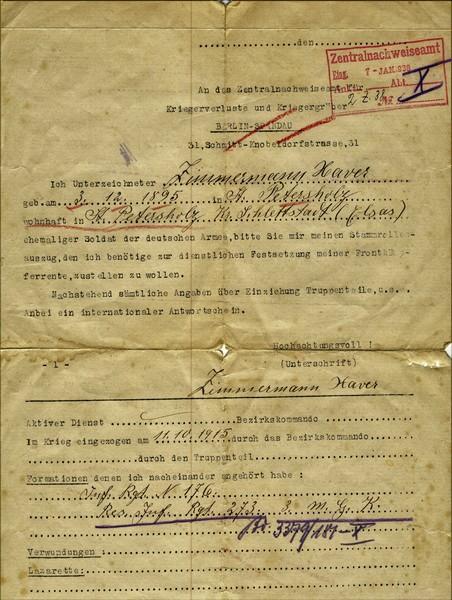 den
Zentralnachweiseamt
Eing. 7 - JAN. 1938 Abt. X
An das Zentralnachweiseamt für
Kriegerverluste und Kriegergräber
BERLIN-SPANDAU
31, Schmitt-Knobelsdorfstrasse, 31
Ich Unterzeichneter Zimmermann Xaver
geb. am 3. 12. 1895 in St. Petersholz
wohnhaft in St. Petersholz Kr. Schlettstadt (Elsas)
ehemaliger Soldat der deutschen Armee, bitte Sie mir meinen Stammrollen-
auszug, den ich benötige zur dienstlichen Festsetzung meiner Frontkämp-
ferrente, zustellen zu wollen.
Nachstehend sämtliche Angaben über Einziehung Truppenteile, u.s.w.
Anbei ein internationaler Antwortschein.
Hochachtungsvoll !
- 1 - (Unterschrift)
Zimmermann Xaver
Aktiver Dienst Bezirkskommando
Im Krieg eingezogen am 11.10.1915 durch das Bezirkskommando
durch den Truppenteil
Formationen denen ich nacheinander angehört habe :
Inf. Rgt. N. 176.
Res. Inf. Rgt. 273. 3. M. G. K.
3379/181 - X
Verwundungen :
Lazarette: